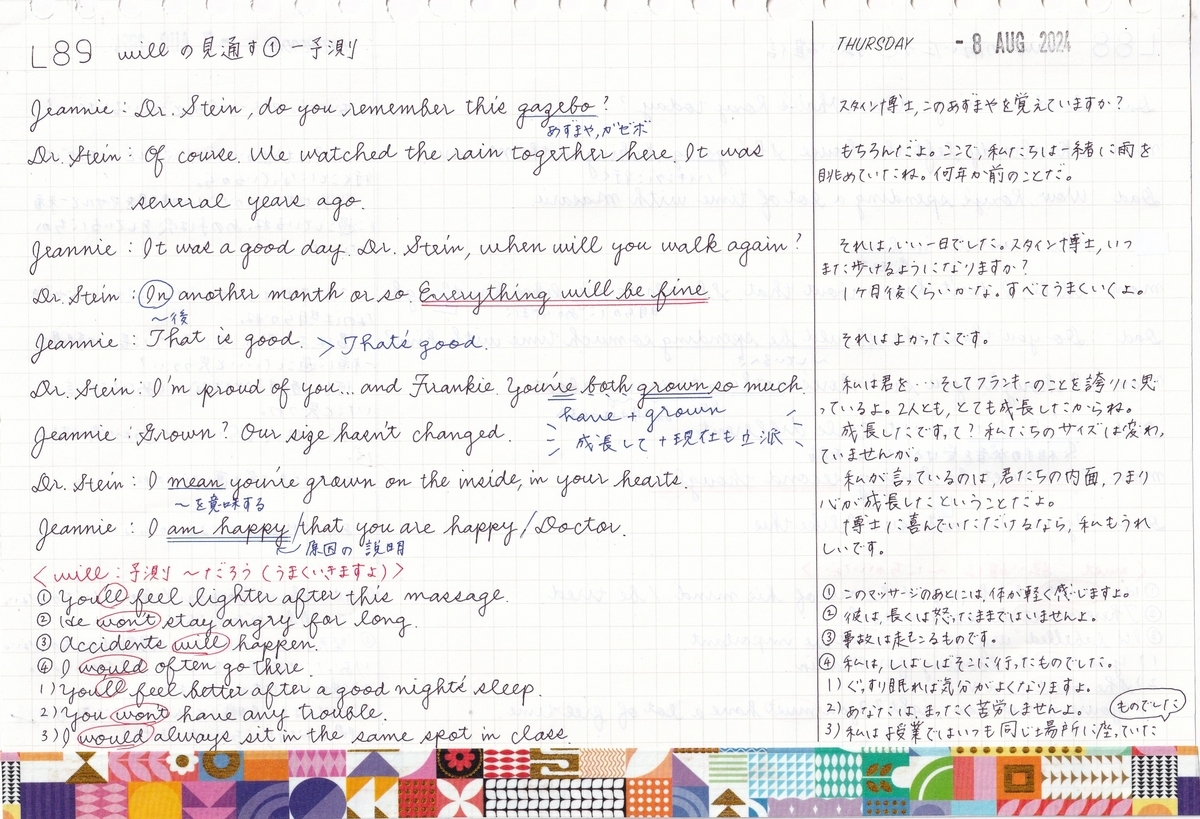 L89 willの見通す①ー予測
THURSDAY - 8 AUG 2024
Jeannie : Dr. Stein, do you remember this gazebo?
あずまや, ガゼボ
Dr. Stein : Of course. We watched the rain together here. It was
several years ago.
Jeannie : It was a good day. Dr. Stein, when will you walk again?
Dr. Stein : In another month or so. Everything will be fine.
〜後
Jeannie : That is good. > That's good.
Dr. Stein : I'm proud of you... and Frankie. You've both grown so much.
have + grown
Jeannie : Grown? Our size hasn't changed.
成長して + 現在も立派
Dr. Stein : I mean you've grown on the inside, in your hearts.
〜を意味する
Jeannie : I am happy / that you are happy / Doctor.
原因の説明
<will : 予測 〜だろう (うまくいきますよ)>
① You'll feel lighter after this massage.
② He won't stay angry for long.
③ Accidents will happen.
④ I would often go there.
1) You'll feel better after a good night's sleep.
2) You won't have any trouble.
3) I would always sit in the same spot in class.
スタイン博士, このあずまやを覚えていますか?
もちろんだよ。ここで, 私たちは一緒に雨を
眺めていたね。何年か前のことだ。
それは, いい一日でした。スタイン博士, いつ
また歩けるようになりますか?
1ヶ月後くらいかな。すべてうまくいくよ。
それはよかったです。
私は君を…そしてフランキーのことを誇りに思
っているよ。2人とも, とても成長したからね。
成長したですって? 私たちのサイズは変わっ
ていませんが。
私が言っているのは, 君たちの内面, つまり
心が成長したということだよ。
博士に喜んでいただけるなら, 私もうれ
しいです。
① このマッサージのあとには, 体が軽く感じますよ。
② 彼は, 長くは怒ったままではいませんよ。
③ 事故は起こるものです。
④ 私は, しばしばそこに行ったものでした。
1) ぐっすり眠れば気分がよくなりますよ。
2) あなたはまったく苦労しませんよ。
3) 私は授業ではいつも同じ場所に座っていた
ものでした